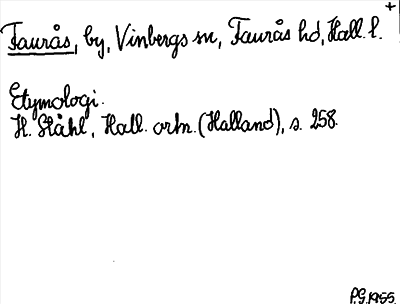 +
Faurås, by, Vinbergs sn, Faurås hd, Hall. l.
Etymologi.
H. Ståhl, Hall. ortn. (Halland), s. 258.
P.G. 1955.